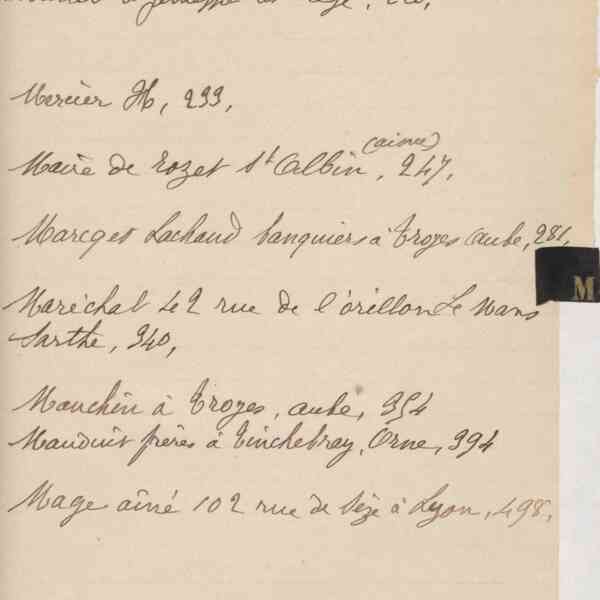 Mercier H, 233,
(aisne)
Maire de Rozet St Albin, 247,
Marcq et Lachaud banquiers à Troyes Aube, 281,
M
Maréchal 42 rue de l'orillon Le Mans
Sarthe, 340,
Manchin à Troyes, aube, 354
Mauduit frères à Tinchebray, Orne, 394
Mage aîné 102 rue de Sèze à Lyon, 498,